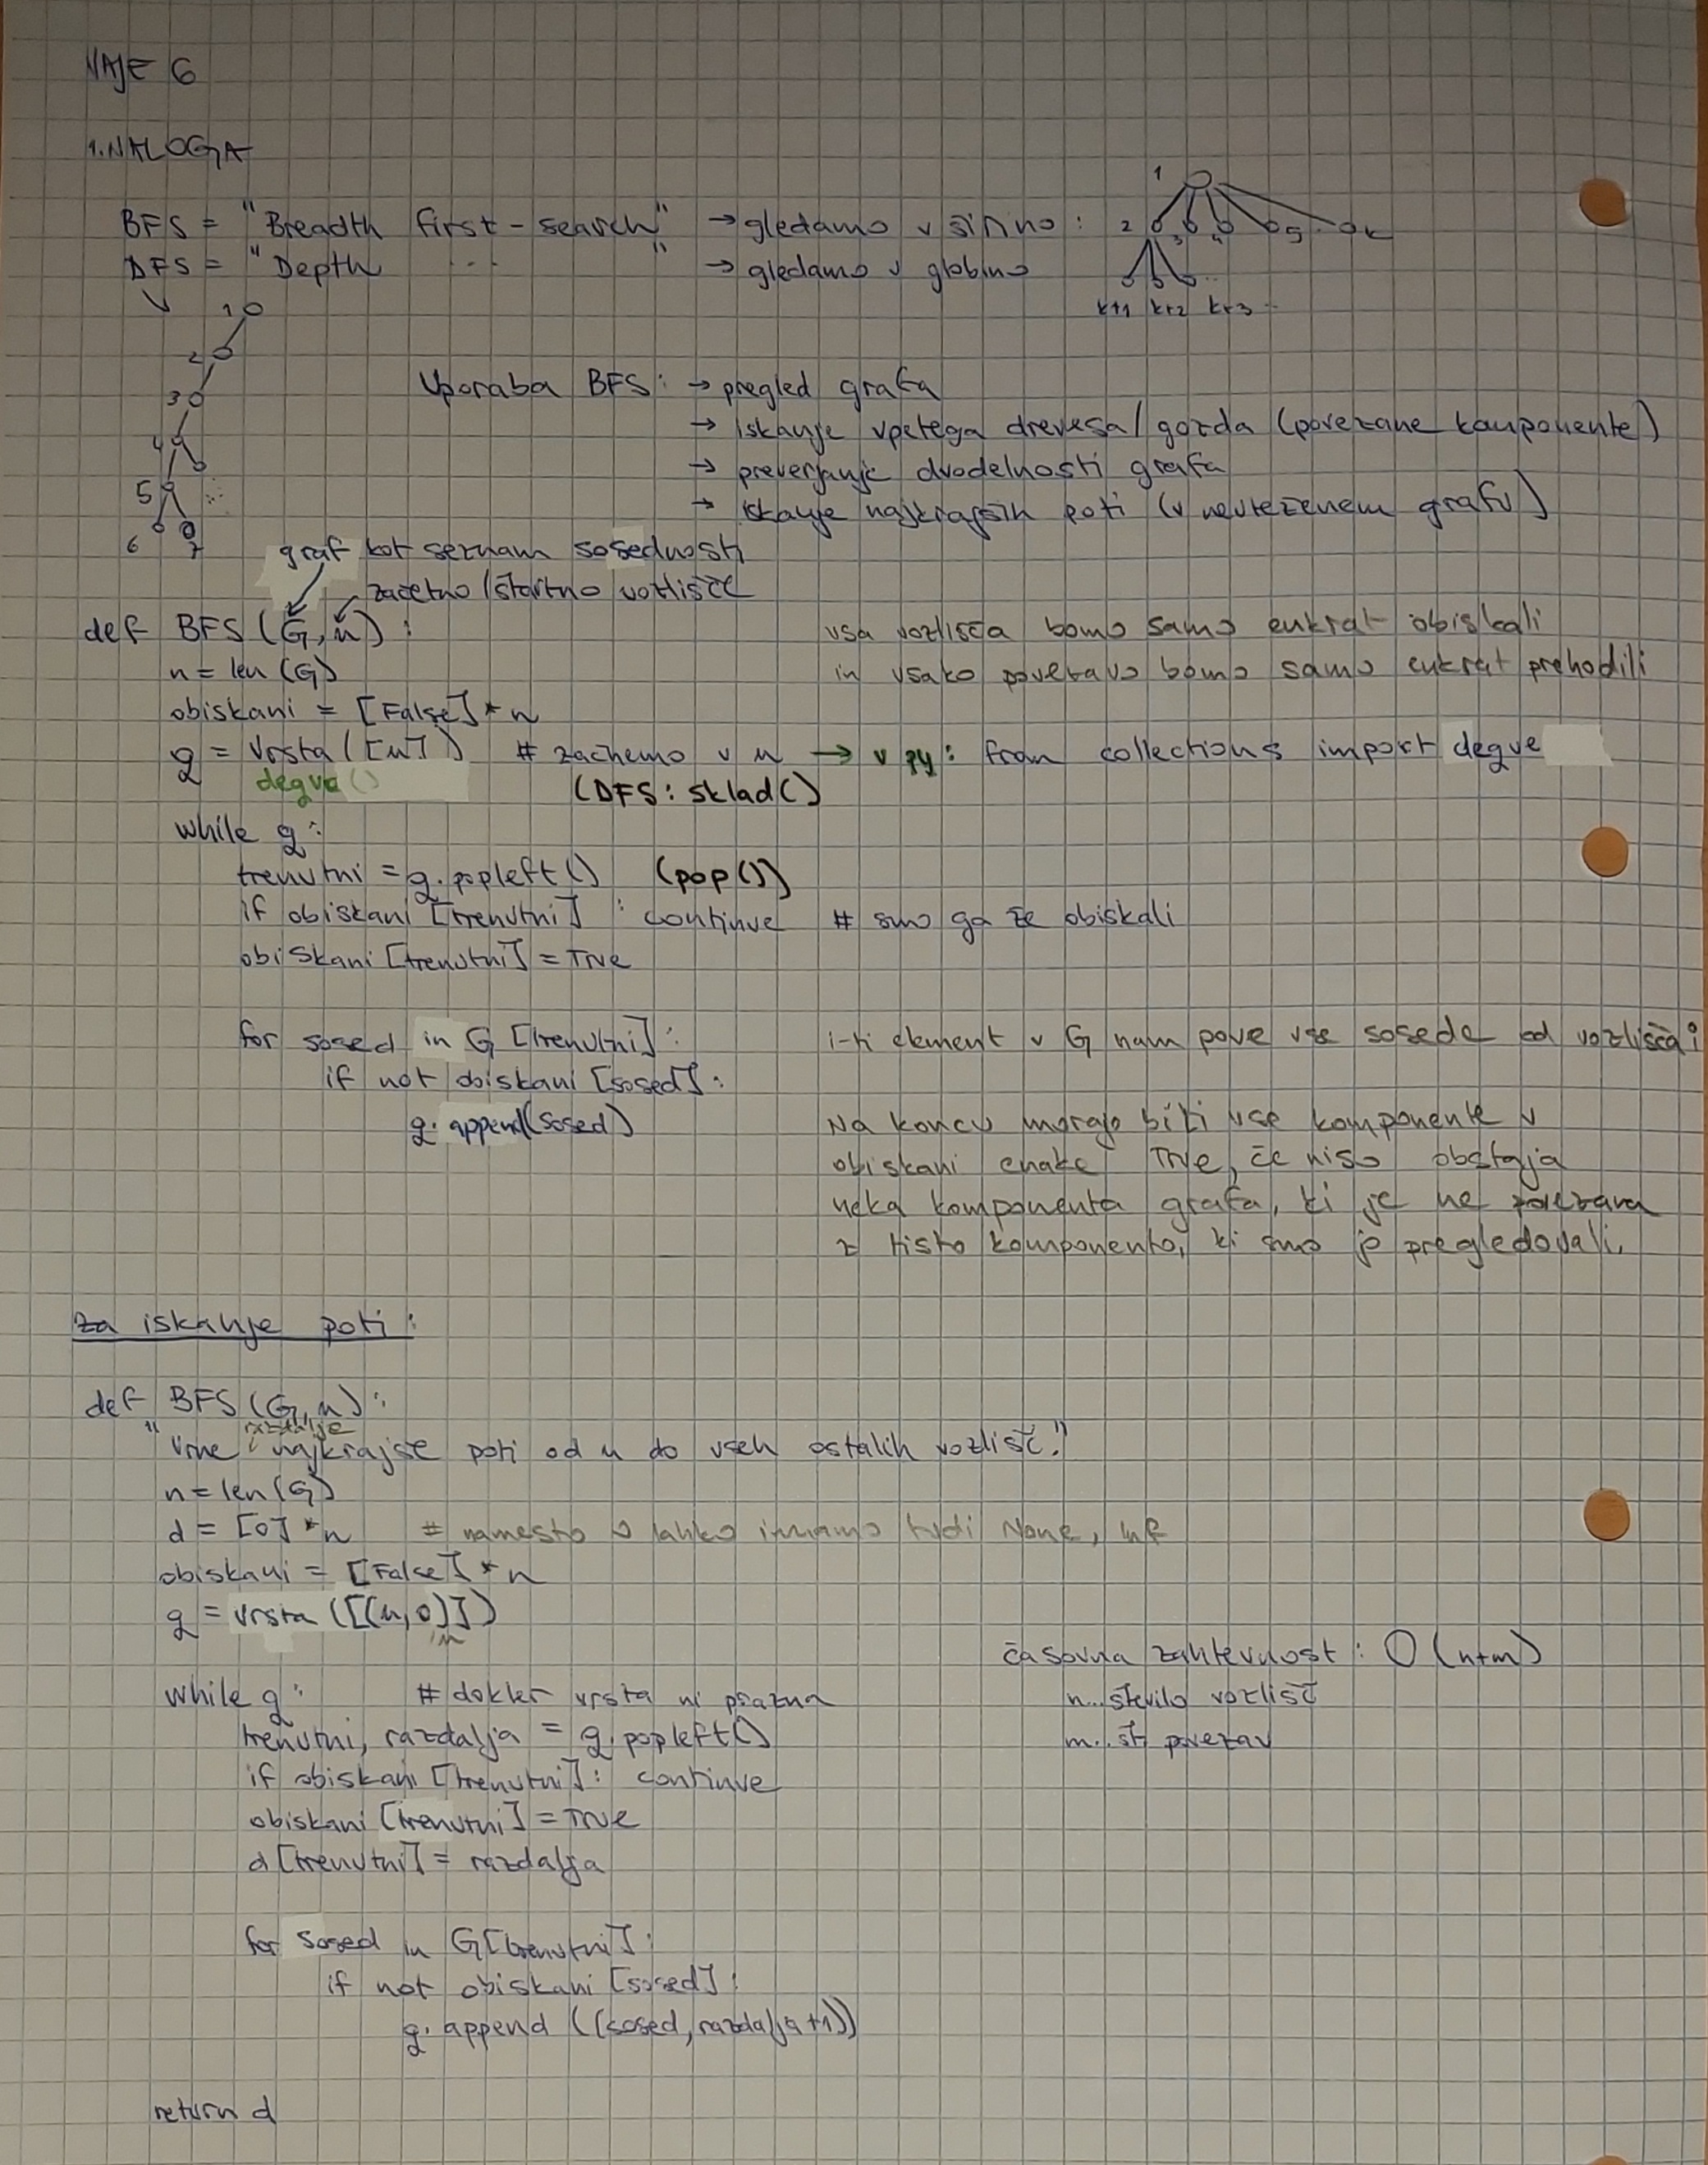 VAJE 6
1. NALOGA
BFS = "Breadth first-search" → gledamo v širino :
DFS = "Depth ... " → gledamo v globino
1
2 3 4 5 ... k
k+1 k+2 k+3 ...
1
2
3
4
5
6 7
Uporaba BFS: → pregled grafa
→ iskanje vpetega drevesa/gozda (povezane komponente)
→ preverjanje dvodelnosti grafa
→ iskanje najkrajših poti (v neuteženem grafu)
graf kot seznam sosednosti
začetno/štartno vozlišče
def BFS (G, u) :
n = len (G)
obiskani = [False] * n
q = Vrsta ([u]) # začnemo v u → v py: from collections import deque
deque()
(DFS: sklad())
while q :
trenutni = q.popleft() (pop())
if obiskani [trenutni] : continue # smo ga že obiskali
obiskani [trenutni] = True
for sosed in G [trenutni] :
if not obiskani [sosed] :
q.append(sosed)
vsa vozlišča bomo samo enkrat obiskali
in vsako povezavo bomo samo enkrat prehodili
i-ti element v G nam pove vse sosede od vozlišča i
Na koncu morajo biti vse komponente v
obiskani enake True, če niso obstaja
neka komponenta grafa, ki je ne povezava
z tisto komponento, ki smo jo pregledovali.
Za iskanje poti :
def BFS (G, u) :
razdalje
"Vrne najkrajše poti od u do vseh ostalih vozlišč."
n = len (G)
d = [0] * n # namesto 0 lahko imamo tudi None, inf
obiskani = [False] * n
q = vrsta ([(u, 0)])
while q : # dokler vrsta ni prazna
trenutni, razdalja = q.popleft()
if obiskani [trenutni] : continue
obiskani [trenutni] = True
d [trenutni] = razdalja
for sosed in G [trenutni] :
if not obiskani [sosed] :
q.append ((sosed, razdalja +1))
return d
časovna zahtevnost : O (n+m)
n... število vozlišč
m... št. povezav